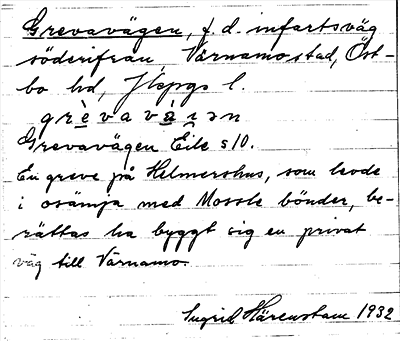 Grevavägen, f. d. infartsväg
söderifrån Värnamo stad, Öst-
bo hd, Jkpgs l.
grèvavà̱ıən
Grevavägen Eilc s10.
En greve på Helmershus, som levde
i osämja med Mossle bönder, be-
rättas ha byggt sig en privat
väg till Värnamo.
Ingrid Härenstam 1932